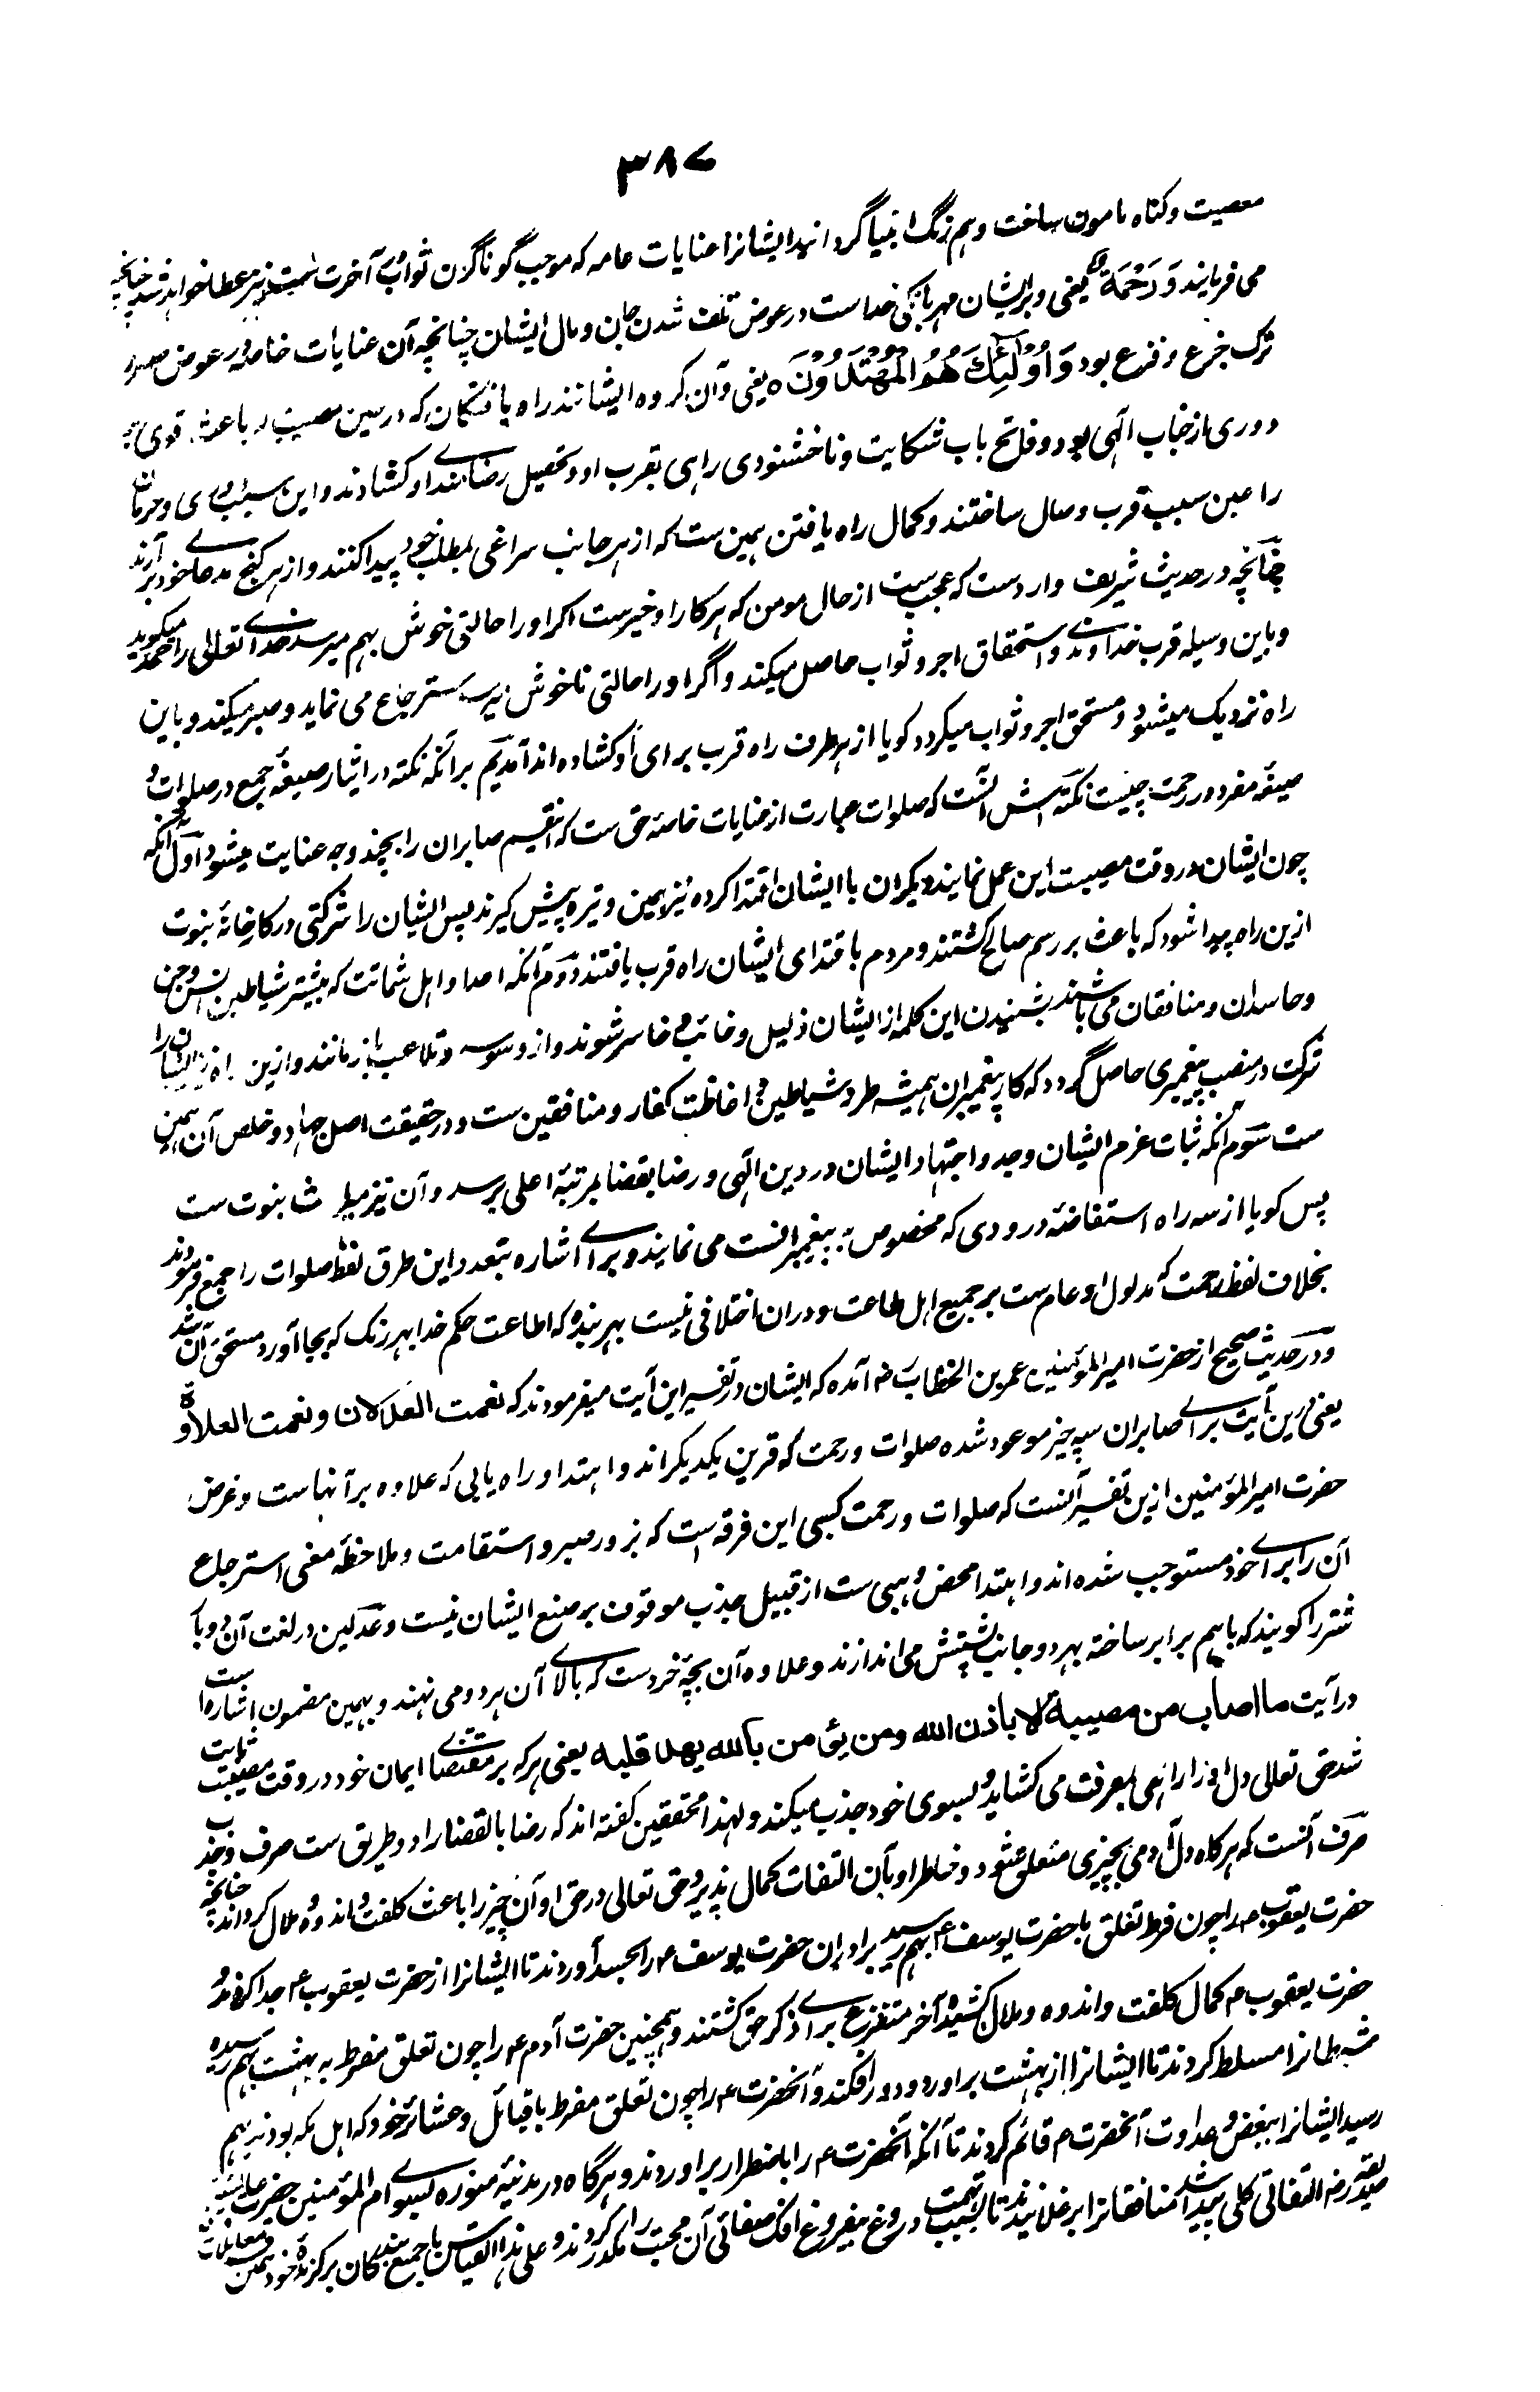 ٣٨٧
معصیت و گناه مامون ساخت و همرنگ انبیا گردانید ایشانرا عنایات عامه که موجب گوناگون ثواب آخرت ست نیز عطا خواهد شد چنانچه
می فرمایند وَ رَحْمَةٌ یعنی و برایشان مهربانگی خداست در عوض تلف شدن جان و مال ایشان چنانچه آن عنایات خاصه در عوض صبر و
ترک جزع و فزع بود وَ اُولٰٓئِكَ هُمُ الْمُهْتَدُوْنَ ه یعنی و آن گروه ایشانند راه یافتگان که در عین مصیبت که باعث قوی بر
دوری از جناب الٰهی بود و فاتح باب شکایت و ناخشنودی راهی بقرب او و تحصیل رضامندی او کشادند و این سبب دوری و حرمان
را عین سبب قرب و وصال ساختند و کمال راه یافتن همین ست که از هر جانب سراغی بمطلب خود پیدا کنند و از هر کنج مدعای خود برآرند
چنانچه در حدیث شریف وارد ست که عجب ست از حال مومن که هر کار او خیر ست اگر او را حالتی خوش بهم میرسد خدای تعالی را حمد میگوید
و باین وسیله قرب خداوندی و استحقاق اجر و ثواب حاصل میکند و اگر او را حالتی ناخوش میرسد استرجاع می نماید و صبر میکند و باین
راه نزدیک میشود و مستحق اجر و ثواب میگردد گویا از هر طرف راه قرب برای او کشاده اند آمدیم برآنکه نکته در ایثار صیغه جمع در صلوات و
صیغه مفرد در رحمت چیست نکته اش آنست که صلوات عبارت از عنایات خاصه حق ست که این قسم صابران را بچند وجه عنایت میشود اول آنکه
چون ایشان در وقت مصیبت این عمل نمایند دیگران با ایشان اقتدا کرده نیز همین وتیره پیش گیرند پس ایشان را شرکتی در کارخانه نبوت
ازین راه پیدا شود که باعث بر رسم صالح گشتند و مردم باقتدای ایشان راه قرب یافتند دوم آنکه اعدا و اهل شماتت که بیشتر شیاطین انس و جن
و حاسدان و منافقان می باشند بشنیدن این کلمه از ایشان ذلیل و خائب و خاسر شوند و از وسوسه و تلاعب باز مانند و ازین راه نیز ایشان را
شرکت در منصب پیغمبری حاصل گردد که کار پیغمبران همیشه طرد شیاطین و اغاظت کفار و منافقین ست و در حقیقت اصل جهاد و مخلص آن همین
ست سوم آنکه ثبات عزم ایشان و جد و اجتهاد ایشان در دین الٰهی و رضا بقضا بمرتبه اعلی برسد و آن نیز میراث نبوت ست
پس گویا از سه راه استفاضه درودی که مخصوص به پیغمبرانست می نمایند و برای اشاره بتعدد این طرق لفظ صلوات را جمع فرمودند
بخلاف لفظ رحمت که مدلول او عام ست بر جمیع اهل طاعت و دران اختلافی نیست بهر بنده که اطاعت حکم خدا بهر رنگ که بجا آورد مستحق آن شد
و در حدیث صحیح از حضرت امیر المؤمنین عمر بن الخطاب رض آمده که ایشان در تفسیر این آیت میفرمودند که نعمت العدلان و نعمت العلاوة
یعنی درین آیت برای صابران سه چیز موعود شده صلوات و رحمت که قرین یکدیگر اند و اهتدا و راه یابی که علاوه برآنهاست و غرض
حضرت امیر المؤمنین ازین تفسیر آنست که صلوات و رحمت کسبی این فرقه است که بزور صبر و استقامت و ملاحظه معنی استرجاع
آن را برای خود مستوجب شده اند و اهتدا محض وهبی ست از قبیل جذب موقوف بر صنع ایشان نیست و عدلین در لغت آن دو بار
شتر را گویند که باهم برابر ساخته بهر دو جانب پشتش می اندازند و علاوه آن بچه خرد ست که بالای آن هر دو می نهند و بهمین مضمون اشاره است
در آیت ما اصاب من مصیبة الا باذن الله ومن یؤمن بالله یهد قلبه یعنی هر که بر مقتضای ایمان خود در وقت مصیبت ثابت
شد حق تعالی دل او را راهی بمعرفت می کشاید و بسوی خود جذب میکند و لهذا محققین گفته اند که رضا بالقضا را دو طریق ست صرف و جذب
صرف آنست که هرگاه دل آدمی بچیزی متعلق شود و خاطر او بآن التفات کمال پذیرد حق تعالی در حق او آن چیز را باعث کلفت و اندوه و ملال گرداند چنانچه
حضرت یعقوب ع را چون فرط تعلق با حضرت یوسف ع بهم رسید برادران حضرت یوسف ع را بحسد آوردند تا ایشانرا از حضرت یعقوب ع جدا کردند و
حضرت یعقوب ع کمال کلفت و اندوه و ملال کشیده آخر متفرغ برای ذکر حق گشتند و همچنین حضرت آدم ع را چون تعلق مفرط به بهشت بهم رسید
شیطانرا مسلط کردند تا ایشانرا از بهشت برآورد و دور افکند و آنحضرت ص را چون تعلق مفرط با قبائل و عشائر خود که اهل مکه بودند بهم
رسید ایشانرا ببغض و عداوت آنحضرت ص قائم کردند تا آنکه آنحضرت ص را باضطرار برآوردند و هرگاه در مدینه منوره بسوی ام المؤمنین حضرت عائشه
صدیقه رض التفاتی کلی پیدا شد منافقانرا برغلانیدند تا بسبب تهمت دروغ بیفروغ افک صفائی آن محبت را مکدر کردند و علی هذا القیاس با جمیع بندگان برگزیده خود همین معاملات